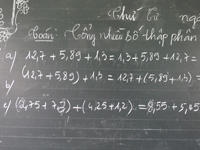 Thứ tư ngà
Toán: Cộng nhiều số thập phân
a) 12,7 + 5,89 + 1,3 = 1,3 + 5,89 + 12,7 =
b) (12,7 + 5,89) + 1,3 = 12,7 + (5,89 + 1,3) =
c) (5,75 + 7,3) + (4,25 + 1,2) = 8,55 + 5,45